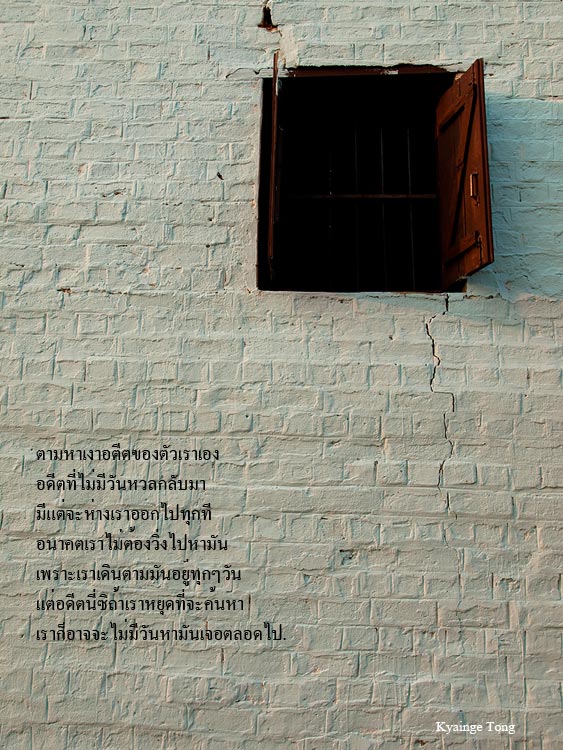 ตามหาเงาอดีตของตัวเราเอง
อดีตที่ไม่มีวันหวลกลับมา
มีแต่จะห่างเราออกไปทุกที
อนาคตเราไม่ต้องวิ่งไปหามัน
เพราะเราเดินตามมันอยู่ทุกๆวัน
แต่อดีตนี่ซิถ้าเราหยุดที่จะค้นหา
เราก็อาจจะไม่มีวันหามันเจอตลอดไป.
Kyainge Tong